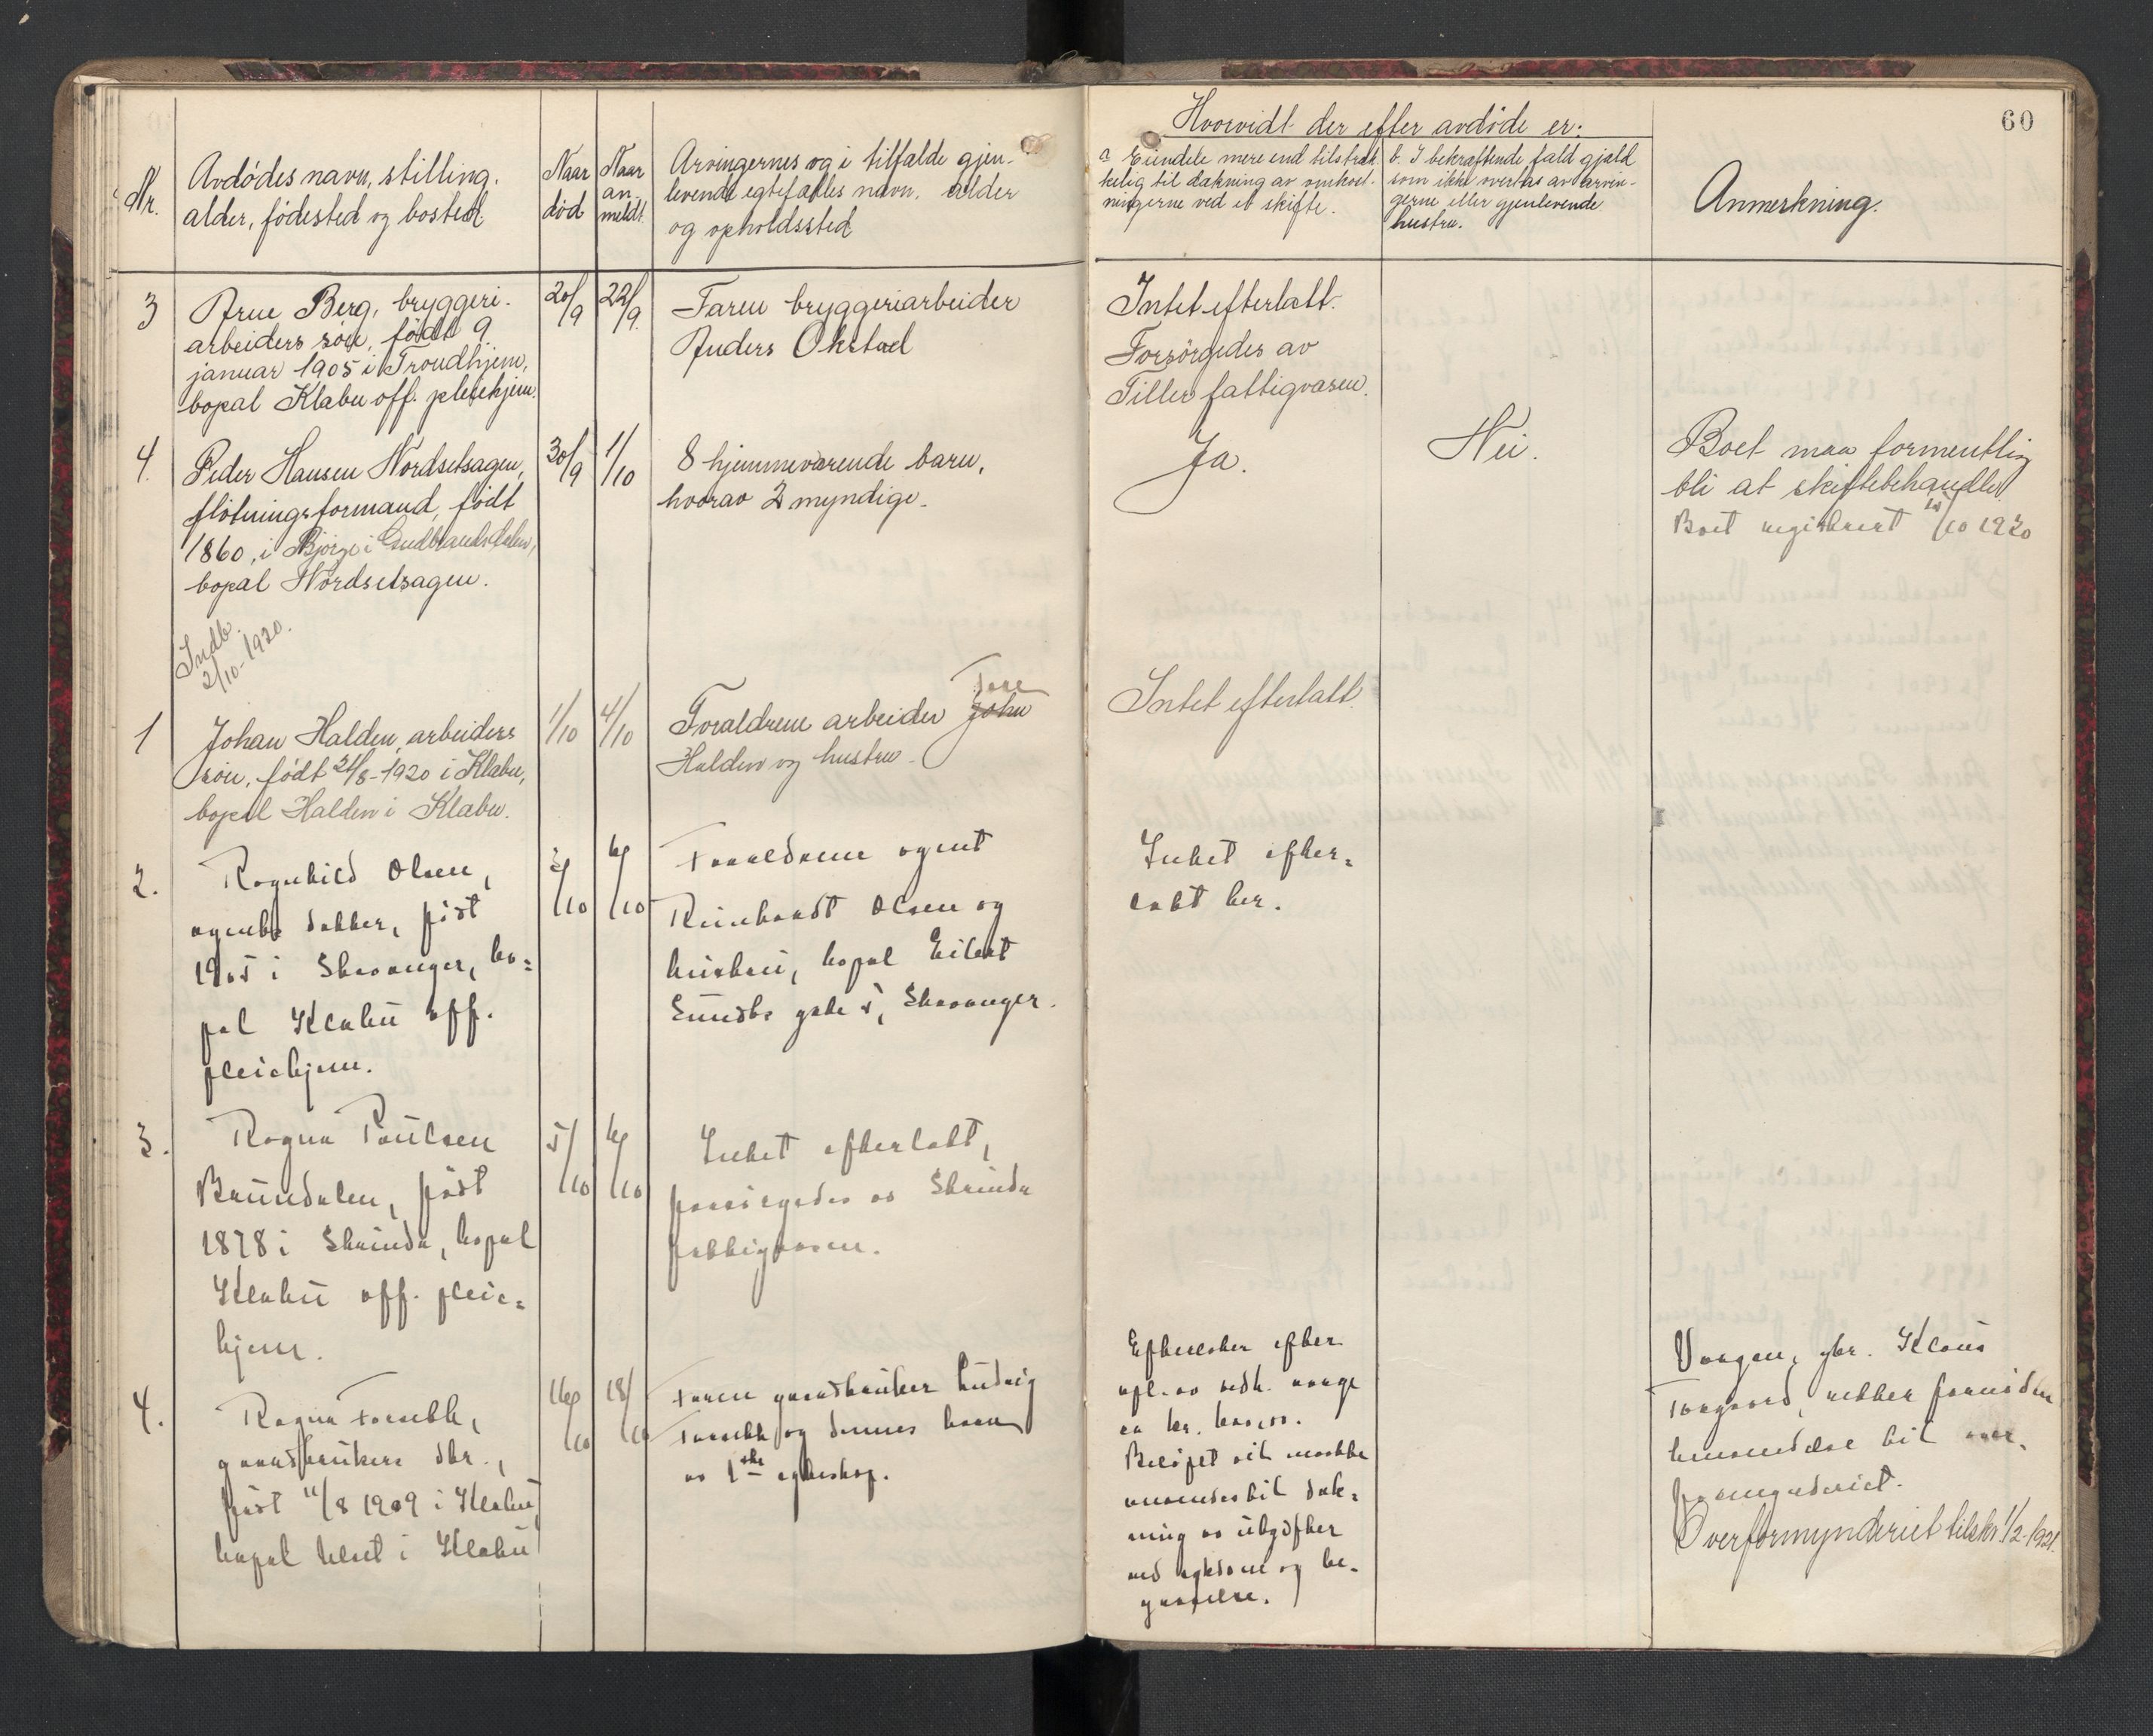 60
Hvorvidt der efter avdöde er:
Nr.
Avdödes navn, stilling,
alder, födested og bosted
Naar
död
Naar
an-
meldt.
Arvingernes og i tilfælde gjen-
levende egtefælles navn, alder
og opholdssted
a Eiendele mere end tilstræk-
kelig til dækning av omkost-
ningerne ved et skifte.
b. I bekræftende fald gjæld
som ikke overtas av arvin-
gerne eller gjenlevende
hustru.
Anmerkning.
3
Arne Berg, bryggeri-
arbeiders sön, födt 9
januar 1905 i Trondhjem,
bopæl Klæbu off. pleiehjem.
20/9
22/9.
Faren bryggeriarbeider
Anders Okstad
Intet efterlatt.
Forsörgedes av
Tiller fattigvæsen.
4.
Peder Hansen Nordsetsagen,
flötningsformand, födt
1860, i Gudbrandsdalen,
bopæl Nordsetsagen.
30/9
1/10
8 hjemmeværende barn,
hvorav 2 myndige.
Ja.
Nei.
Boet maa formentlig
bli at skiftebehandle
Boet registrert /10 1920
Indb.
2/10-1920.
1
Johan Halden, arbeiders
sön, födt 24/8-1920 i Klæbu,
bopæl Halden i Klæbu.
1/10
4/10
Tore
Forældrene arbeider John
Halden og hustru
Intet efterlatt.
2.
Ragnhild Olsen,
agents datter, födt
1905 i Stavanger, bo=
pæl Klæbu off.
pleiehjem.
3/10
6/10
Forældrene agent
Reinhardt Olsen og
hustru, bopæl Eilert
Sundts gate 5, Stavanger.
Intet efter=
latt her.
3.
Ragna Paulsen
Brundalen, födt
1878 i Strinda, bopæl
Klæbu off. pleie=
hjem.
5/10
6/10
Intet efterlatt,
forsörgedes av Strinda
fattigvæsen.
4.
Ragna Forseth,
gaardbrukers dtr.,
födt 11/8 1909 i Klæbu
bopæl i Klæbu
16/10
18/10
Faren gaardbruker Ludvig
Forseth og dennes barn
av 1ste egteskap.
Efterlater efter
opl. av vedk. verge
ca kr.
Belöpet vil maatte
anvendes til dæk=
ning av utgifter
ved sykdom og be-
gravelse.
Vergen, gbr. Klaus
Torgaard, retter fornöden
henvendelse til over-
formynderiet.
Overformynderiet tilskr. 1/2-1921.